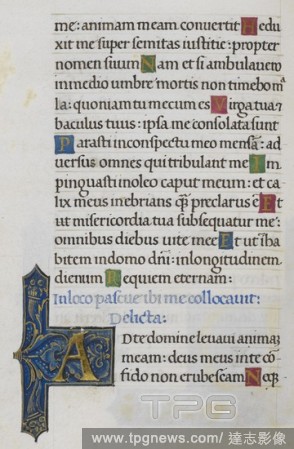 me: animam meam convertit Dedu
xit me super semitas iustitie: propter
nomen suum Nam et si ambulavero
in medio umbre mortis non timebo ma
la: quoniam tu mecum es Virga tua 7
baculus tuus: ipsa me consolata sunt
Parasti in conspectu meo mensā: ad
versus omnes qui tribulant me Im
pinguasti in oleo caput meum: et ca
lix meus inebrians q̄ preclarus E Et
ut misericordia tua subsequatur me:
omnibus diebus vite mee Et ut iha
bitem in domo dñi: in longitudinem
dierum Requiem eternam:
In loco pascue ibi me collocavit:
Delicta:
A Dte domine levavi animā
meam: deus meus in te cō
fido non erubescam Neq
TPG
www.tpgnews.com / 達志影像